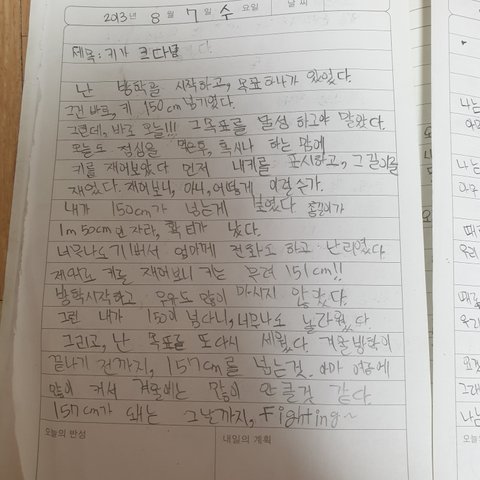 2013년 8월 7일 수요일 날씨
제목: 키가 크다
난 방학을 시작하고, 목표 하나가 있었다.
그건 바로, 키 150cm 넘기였다.
그런데, 바로 오늘!!! 그 목표를 달성하고야 말았다.
오늘도 점심을 먹은후, 혹시나 하는 맘에
키를 재어보았다 먼저 내키를 표시하고, 그 길이를
재었다. 재어보니, 아니, 어떻게 이런 수가.
내가 150cm가 넘는게 보였다 줄길이가
1m 50cm인 자라, 확 티가 났다.
너무나도 기뻐서 엄마께 전화도 하고 난리였다
제대로 키를 재어보니 키는 무려 151cm!!
방학시작하고 우유도 많이 마시지 않았다.
그런 내가 150이 넘다니, 너무나도 놀라웠다.
그리고, 난 목표를 또다시 세웠다. 겨울방학이
끝나기 전까지, 157cm를 넘는것. 아마 여름에
많이 커서 겨울에는 많이 안클것 같다.
157cm가 돼는 그날까지, Fighting~
오늘의 반성 내일의 계획